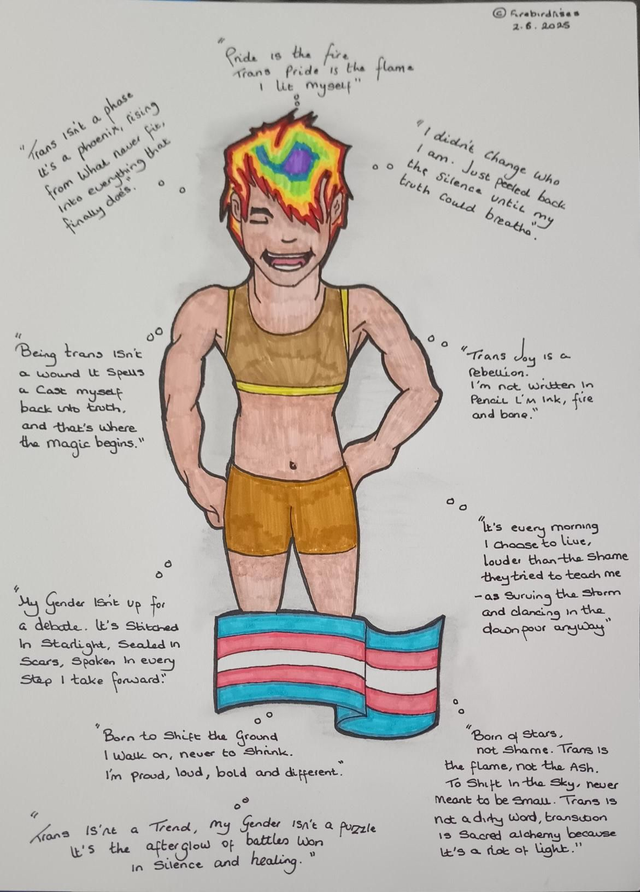 © firebirdrises
2.6.2025
"Pride is the fire
Trans Pride is the flame
I lit myself"
"Trans isn't a phase
It's a phoenix, rising
from what never fit,
into everything that
finally does."
"I didn't change who
I am. Just peeled back
the silence until my
truth could breathe".
"Being trans isn't
a wound it spells
a cast myself
back into truth,
and that's where
the magic begins."
"Trans Joy is a
rebellion.
I'm not written in
Pencil I'm ink, fire
and bone."
"It's every morning
I choose to live,
louder than the shame
they tried to teach me
-as suruing the storm
and dancing in the
downpour anyway"
"My Gender isn't up for
a debate. It's Stitched
in Starlight, Sealed in
Scars, Spoken in every
Step I take forward."
"Born to Shift the Ground
I walk on, never to Shink.
I'm proud, loud, bold and different."
"Born of Stars,
not Shame. Trans is
the flame, not the Ash.
To Shift in the Sky, never
meant to be Small. Trans is
not a dirty word, transition
is Sacred alchemy because
it's a riot of light."
"Trans isn't a Trend, my Gender isn't a puzzle
It's the afterglow of battles won
in silence and healing."